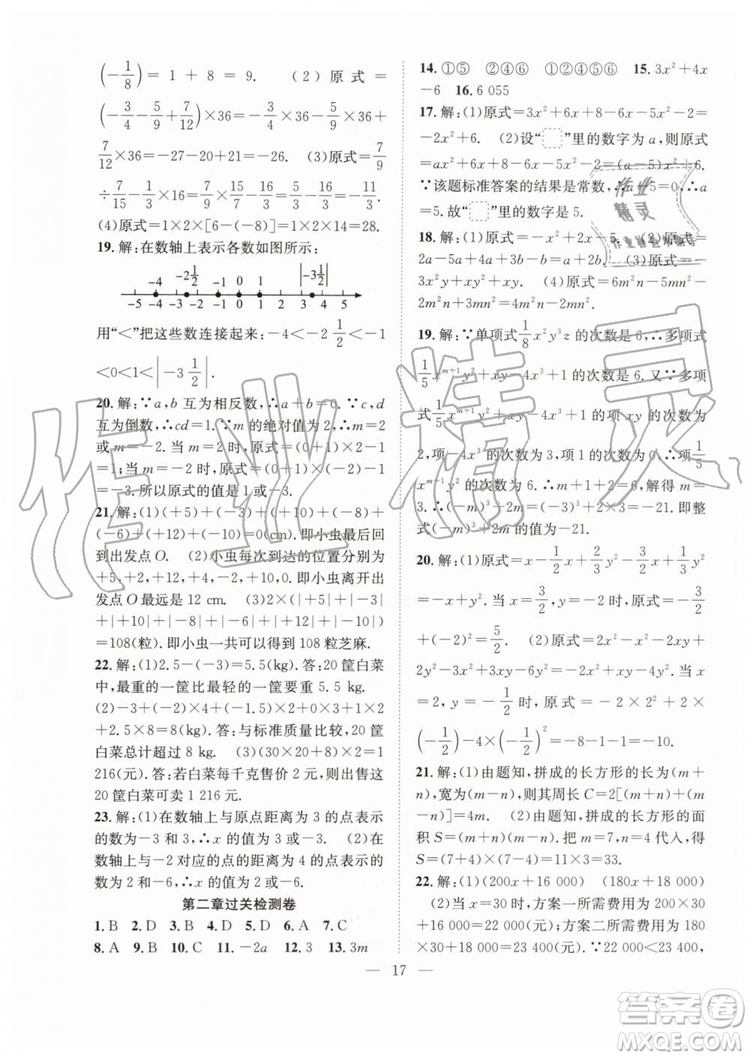 (-1/8)=1+8=9. (2)原式=
(-3/4-5/9+7/12)×36=-3/4×36-5/9×36+
7/12×36=-27-20+21=-26. (3)原式=7/9
÷7/15-1/3×16=5/3-16/3=-11/3.
(4)原式=1×2×[6-(-8)]=1×2×14=28.
19.解:在数轴上表示各数如图所示:
-4 -2 1/2 -1 0 1 |-3 1/2|
-5 -4 -3 -2 -1 0 1 2 3 4 5
用“<”把这些数连接起来:-4<-2 1/2<-1
<0<1<|-3 1/2|.
20.解:∵a,b互为相反数,∴a+b=0.∵c,d
互为倒数,∴cd=1.∵m的绝对值为2,∴m=2
或m=-2.当m=2时,原式=(0+1)×2-1
=1.当m=-2时,原式=(0+1)×(-2)-1
=-3.所以原式的值是1或-3.
21.解:(1)(+5)+(-3)+(+10)+(-8)+
(-6)+(+12)+(-10)=0(cm).即小虫最后
回到出发点O. (2)小虫每次到达的位置分别为
+5,+2,+12,+4,-2,+10,0.即小虫离开出
发点O最远是12 cm. (3)2×(|+5|+|-3|
+|+10|+|-8|+|-6|+|+12|+|-10|)
=108(粒).即小虫一共可以得到108粒芝麻.
22.解:(1)2.5-(-3)=5.5(kg).答:20筐白菜
中,最重的一筐比最轻的一筐要重5.5 kg.
(2)-3×1+(-2)×4+(-1.5)×2+0×3+1
×2+2.5×8=8(kg).答:与标准质量比较,20筐
白菜总计超过8 kg. (3)(20×30+8)×2=1
216(元).答:若白菜每千克售价2元,则出售这
20筐白菜可卖1 216元.
23.解:(1)在数轴上与原点距离为3的点表示
的数为-3和3,∴x=-3或3. (2)在
数轴上与-2对应的点的距离为4的点表示的
数为2或-6,∴x的值为2或-6.
第二章过关检测卷
1.B 2.D 3.B 4.D 5.D 6.D 7.C
8.A 9.A 10.A 11.-2a 12.3 13.3m
14.①⑤ ②④⑥ ①②④⑤⑥ 15.3x²+4x
-6 16.6 055
17.解:(1)原式=3x²+6x+8-6x-5x²-2=
-2x²+6. (2)设“□”里的数字为a,则原式=
ax²+6x+8-6x-5x²-2=(a-5)x²+6.
∵该题标准答案的结果是常数,∴a-5=0,∴a
=5.故“□”里的数字是5.
18.解:(1)原式=-x²+5x+6. (2)原式=
5a-2a+5b+4a-6b=7a-b. (3)原式=
2a-5a+4a+3b-2b=a+b. (4)原式=2m²n
+2n²+4m²n-2n²=6m²n.
19.解:∵单项式1/8x³y²z的次数是6,∴多项式
1/5x^(m+1)y²+xy-4x³+1的次数是6.又∵多项
式1/5x^(m+1)y²+xy-4x³+1的次数为
2,1的次数为0,
项-4x³的次数为3,∴1/5x^(m+1)y²的次数是
6.∴m+1+2=6.解得m=3.
∴(-m)³+2m=(-3)³+2×3=-21.即此整
式(-m)³+2m的值为-21.
20.解:(1)原式=1/2x-2x+2/3y²-3/2x+1/3y²
=-3x+y².当x=3/2,y=-2时,原式=-3×
3/2+(-2)²=-1/2. (2)原式=2x²y+2xy-
2x²y-3xy²-4y²x=-xy²... 
21.解:(1)由题知,拼成的长方形的长为(m+
n),宽为(m-n),则周长C=2[(m+n)+(m-
n)]=4m. (2)由题知,拼成的长方形的面
积S=(m+n)(m-n).把m=7,n=4代入,得
S=(7+4)×(7-4)=11×3=33.
22.解:(1)(200x+16 000) (180x+18 000)
(2)当x=30时,方案一所需费用为200×30+
16 000=22 000(元),方案二所需费用为180×
30+18 000=23 400(元).∵22 000<23 400,
— 17 —
作业精灵
作业精灵
答案圈
MXQE.COM